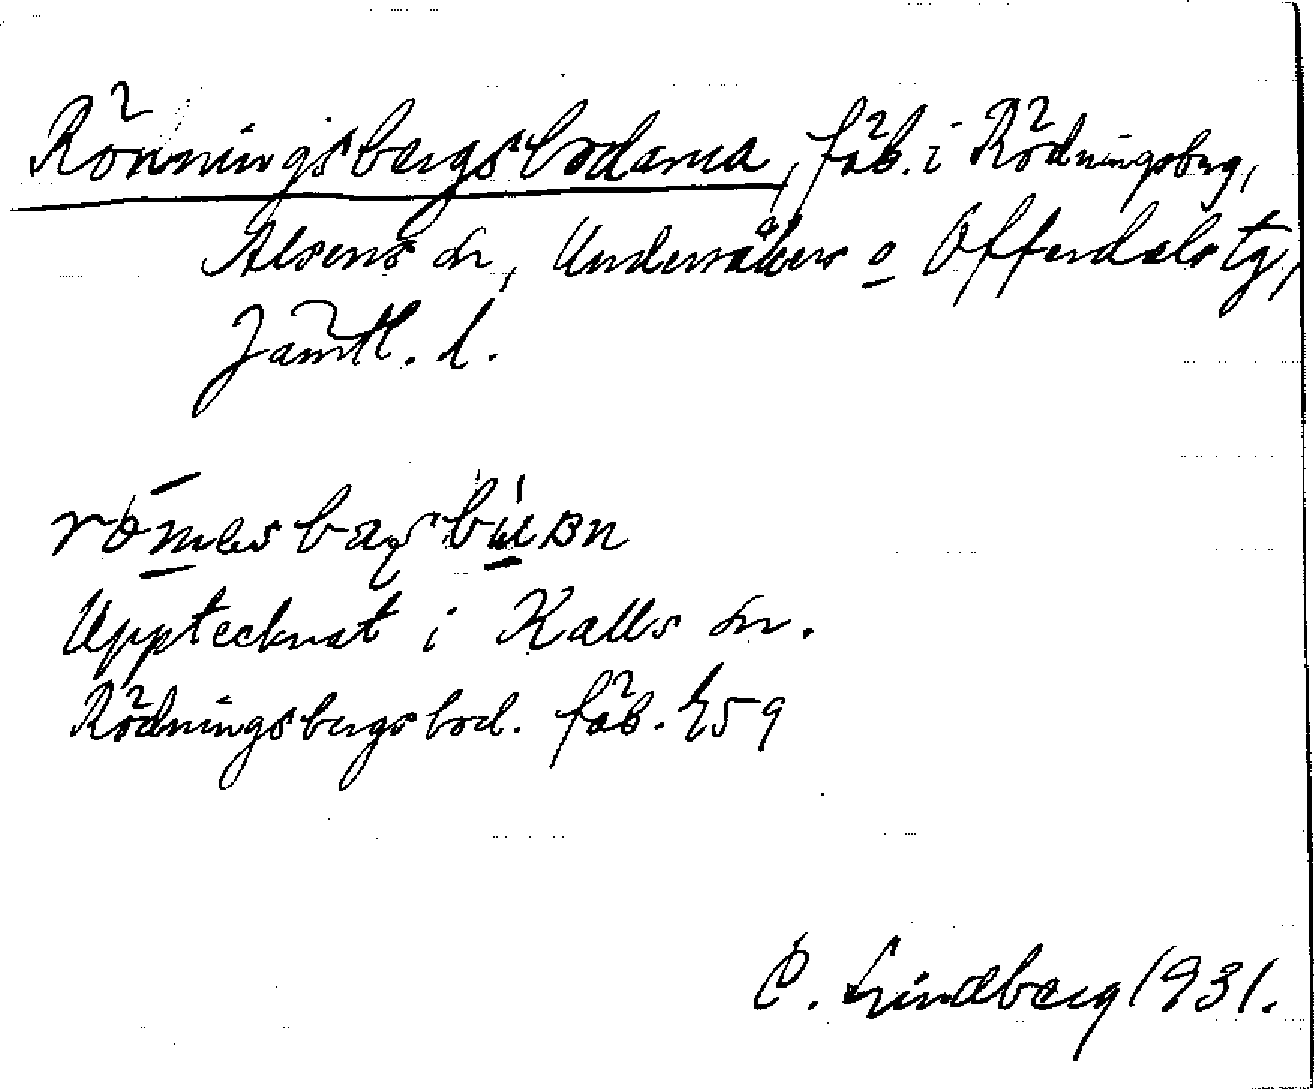 Rönningsbergsbodarna, fäb. i Rödningsberg,
Alsens sn, Undersåkers o Offerdals tg,
Jämtl. l.
Upptecknat i Kalls sn.
Rödningsbergsbod. fäb. E59
C. Lindberg 1931.